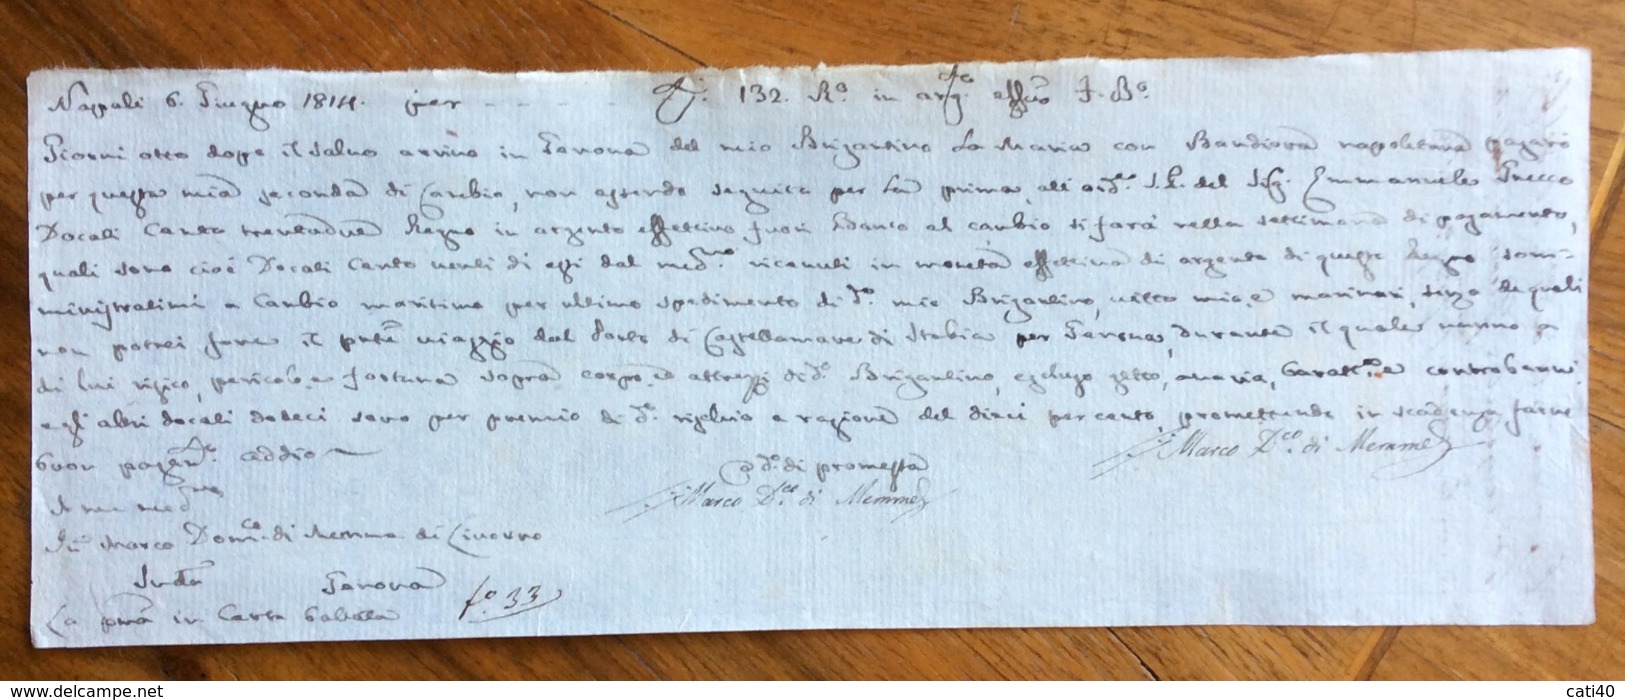 Napoli 6. Giugno 1814. per - - - - D. 132. Ro. in argto. effvo F. Bo.
Giorni otto dopo il salvo arrivo in Genova del mio Brigantino La Maria con Bandiera napoletana pagarò
per questa mia seconda di Cambio, non essendo seguita per la prima, all'ord.e S.P. del Sig. Emmanuele Grecco
Docati Cento trentadue Regno in argento effettivo fuori Banco al cambio si farà nella settimana di pagamento,
quali sono cioè Docati Cento venti di essi dal medmo. ricevuti in moneta effettiva di argento di questo Regno som-
ministratimi a Cambio marittimo per ultimo spedimento di do. mio Brigantino, vitto mio, e marinari, senza de quali
non potrei fare il pnte viaggio dal Porto di Castellamare di Stabia per Genova, durante il quale vanno a
di lui risico, pericolo e fortuna sopra corpo, ed attrezzi di do. Brigantino, escluso getto, avaria, baratta e controbanni
e gli altri docati dodeci sono per premio di do. rischio a ragione del dieci per cento, promettendo in scadenza farne
buon pagamto. addio
Marco Dco. di Memme
a do. di promessa
Marco Dco. di Memme
A me medmo
Marco Domco. di Memme di Livorno
Genova
La pma in Carta bollata fo. 33
www.delcampe.net
cati40